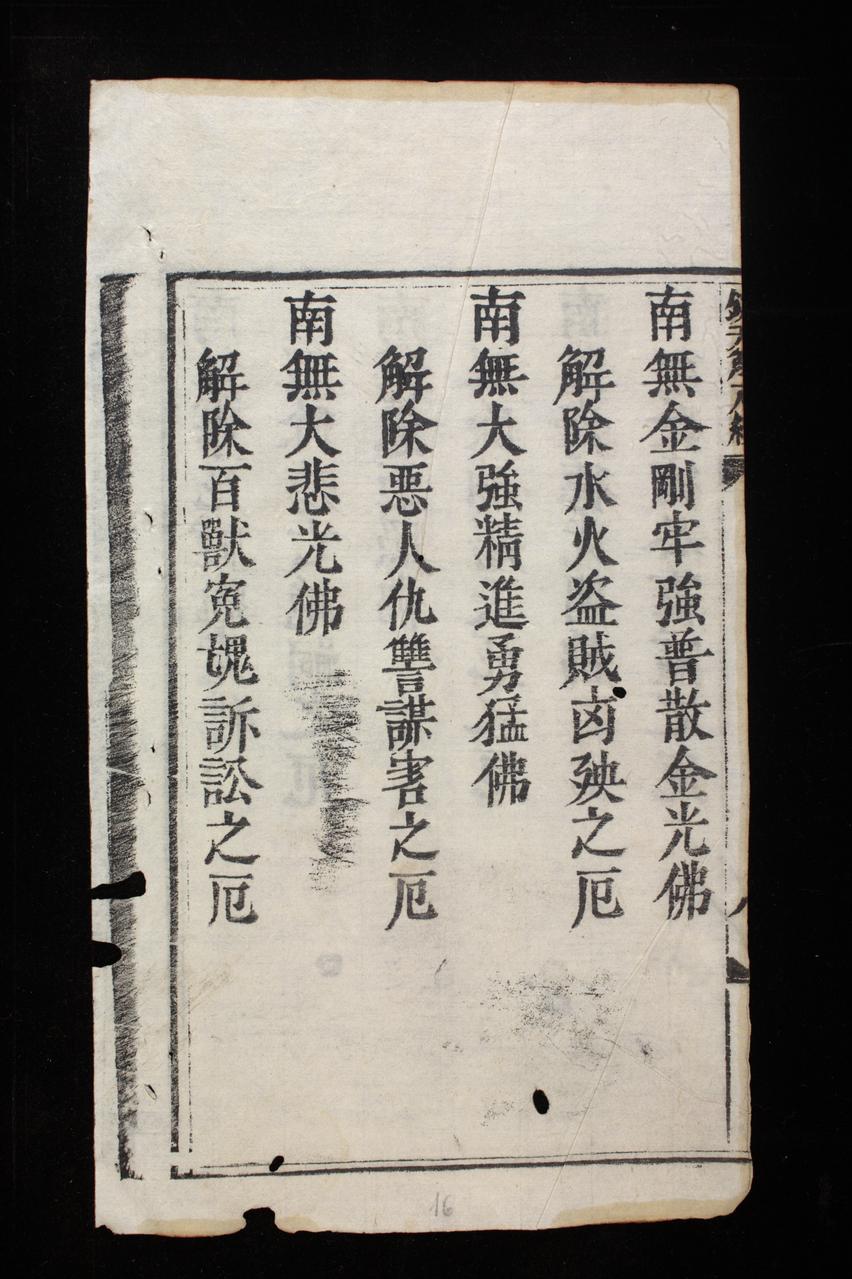 南無金剛牢強普散金光佛
解除水火盗賊凶殃之厄
南無大強精進勇猛佛
解除惡人仇讐謀害之厄
南無大悲光佛
解除百獸寃媿訴訟之厄
16